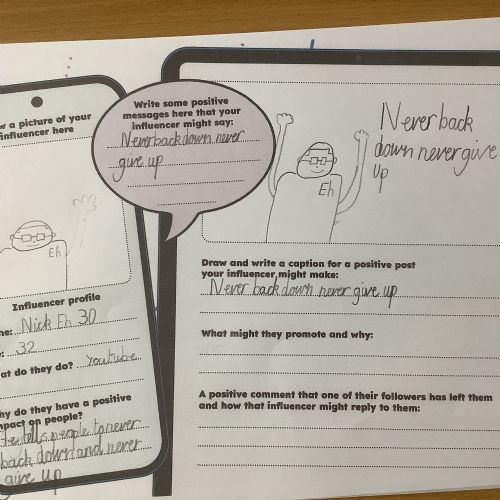 w a picture of your
influencer here
Eh
Influencer profile
ne: Nick Eh 30
: 32
at do they do? Youtube
hy do they have a positive
pact on people?
He tells people to never
back down and never
give up
Write some positive
messages here that your
influencer might say:
Never back down never
give up
Eh
Never back
down never give
up
Draw and write a caption for a positive post
your influencer might make:
Never back down never give up
What might they promote and why:
A positive comment that one of their followers has left them
and how that influencer might reply to them: